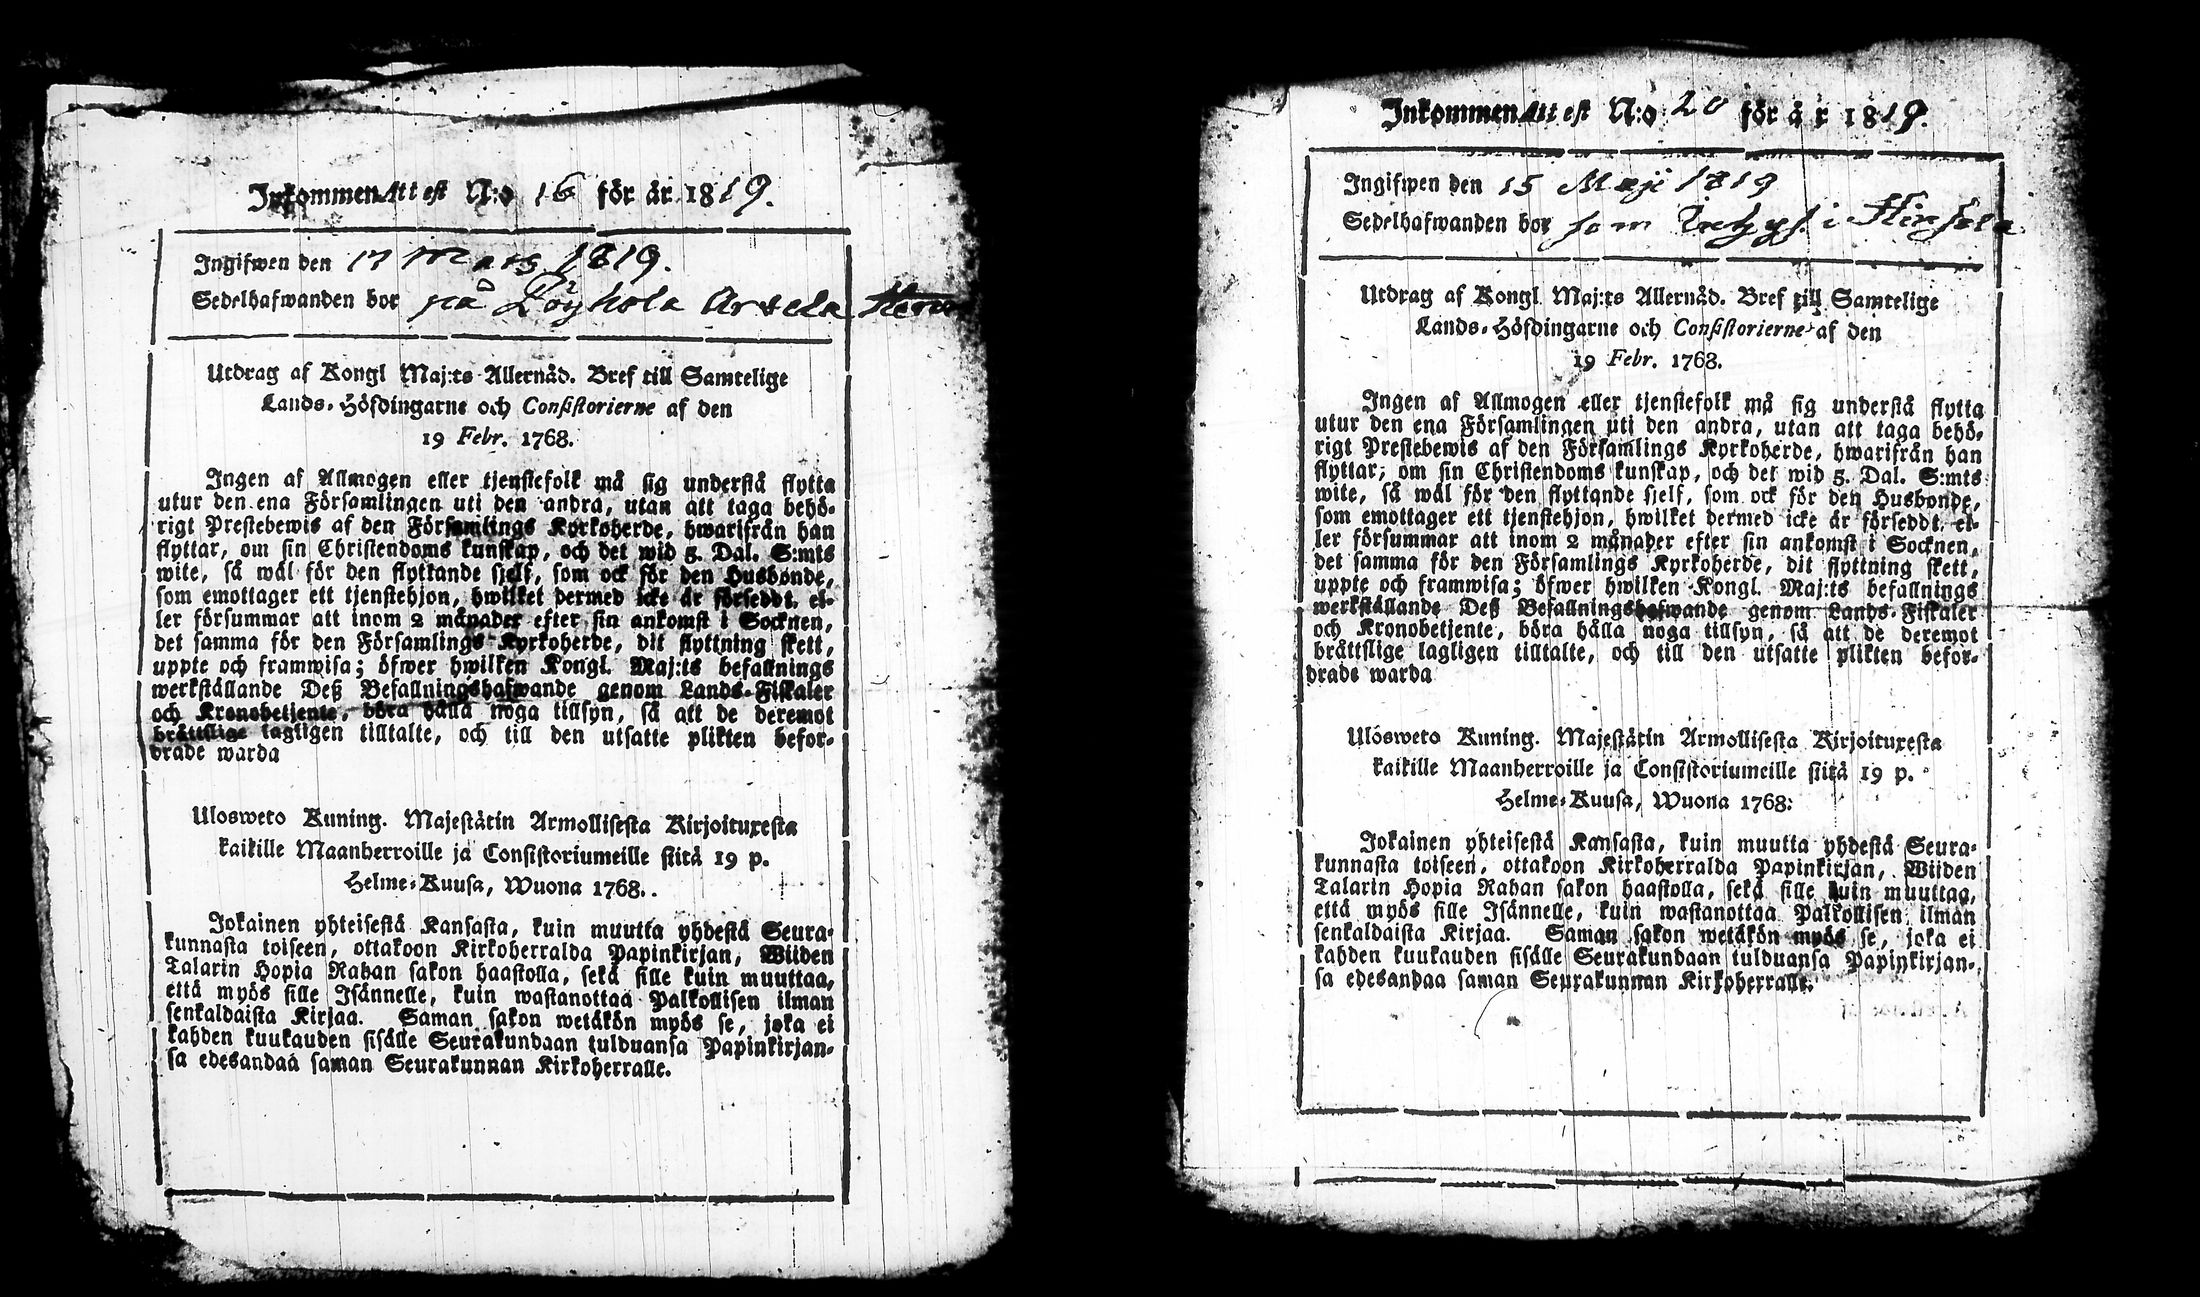 Inkommen Att est N:o 16 för år 1819.
Ingifwen den 17 Mars 1819.
Sedelhafwanden bor på Löyhola
Utdrag af Kongl Maj:ts Allernåd. Bref till Samtelige
Lands-Höfdingarne och Consistorierne af den
19 Febr. 1768.
Ingen af Allmogen eller tjenstefolk må sig understå flytta
utur den ena Församlingen uti den andra, utan att taga behö-
rigt Prestebewis af den Församlings Kyrkoherde, hwarifrån han
flyttar, om sin Christendoms kunskap, och det wid 5. Dal. S:mts
wite, så wäl för den flyttande sjelf, som ock för den Husbonde,
som emottager ett tjenstehjon, hwilket dermed icke är förseddt, el-
ler försummar att inom 2 månader efter sin ankomst i Socknen,
det samma för den Församlings Kyrkoherde, dit flyttning skett,
uppte och framwisa; öfwer hwilken Kongl. Maj:ts befallnings
werkställande Deß Befallningshafwande genom Lands-Fiskaler
och Kronobetjente, böra hålla noga tillsyn, så att de deremot
bråttslige lagligen tilltalte, och till den utsatte plikten befor-
drade warda
Ulosweto Kuning. Majestätin Armollisesta Kirjoituxesta
kaikille Maanherroille ja Consistoriumeille siitä 19 p.
Helme-Kuusa, Wuona 1768.
Jokainen yhteisestä Kansasta, kuin muutta yhdestä Seura-
kunnasta toiseen, ottakoon Kirkoherralda Papinkirjan, Wiiden
Talarin Hopia Rahan sakon haastolla, sekä sille kuin muuttaa,
että myös sille Isännelle, kuin wastanottaa Palkollisen ilman
senkaldaista Kirjaa. Saman sakon wetäkön myös se, joka ei
kahden kuukauden sisälle Seurakundaan tulduansa Papinkirjan-
sa edesandaa saman Seurakunnan Kirkoherralle.
Inkommen Att est N:o 20 för år 1819.
Ingifwen den 15 Maji 1819
Sedelhafwanden bor som Inhys. i
Utdrag af Kongl Maj:ts Allernåd. Bref till Samtelige
Lands-Höfdingarne och Consistorierne af den
19 Febr. 1768.
Ingen af Allmogen eller tjenstefolk må sig understå flytta
utur den ena Församlingen uti den andra, utan att taga behö-
rigt Prestebewis af den Församlings Kyrkoherde, hwarifrån han
flyttar, om sin Christendoms kunskap, och det wid 5. Dal. S:mts
wite, så wäl för den flyttande sjelf, som ock för den Husbonde,
som emottager ett tjenstehjon, hwilket dermed icke är förseddt, el-
ler försummar att inom 2 månader efter sin ankomst i Socknen,
det samma för den Församlings Kyrkoherde, dit flyttning skett,
uppte och framwisa; öfwer hwilken Kongl. Maj:ts befallnings
werkställande Deß Befallningshafwande genom Lands-Fiskaler
och Kronobetjente, böra hålla noga tillsyn, så att de deremot
bråttslige lagligen tilltalte, och till den utsatte plikten befor-
drade warda
Ulosweto Kuning. Majestätin Armollisesta Kirjoituxesta
kaikille Maanherroille ja Consistoriumeille siitä 19 p.
Helme-Kuusa, Wuona 1768:
Jokainen yhteisestä Kansasta, kuin muutta yhdestä Seura-
kunnasta toiseen, ottakoon Kirkoherralda Papinkirjan, Wiiden
Talarin Hopia Rahan sakon haastolla, sekä sille kuin muuttaa,
että myös sille Isännelle, kuin wastanottaa Palkollisen ilman
senkaldaista Kirjaa. Saman sakon wetäkön myös se, joka ei
kahden kuukauden sisälle Seurakundaan tulduansa Papinkirjan-
sa edesandaa saman Seurakunnan Kirkoherralle.